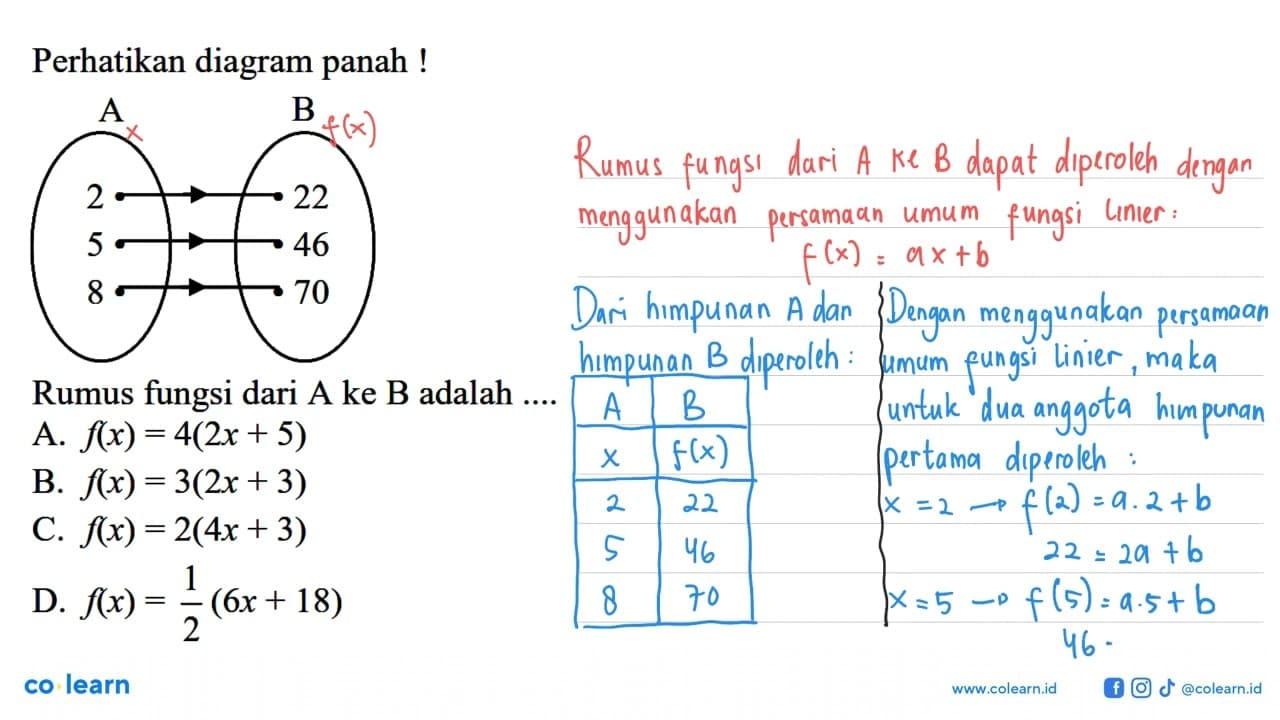 Perhatikan diagram panah !
A B
x f(x)
2 22
5 46
8 70
Rumus fungsi dari A ke B adalah ....
A. f(x) = 4(2x + 5)
B. f(x) = 3(2x + 3)
C. f(x) = 2(4x + 3)
D. f(x) = 1/2 (6x + 18)
Rumus fungsi dari A ke B dapat diperoleh dengan
menggunakan persamaan umum fungsi linier :
f(x) = ax + b
Dari himpunan A dan
himpunan B diperoleh :
A B
x f(x)
2 22
5 46
8 70
Dengan menggunakan persamaan
umum fungsi linier, maka
untuk dua anggota himpunan
pertama diperoleh :
x = 2 → f(2) = a . 2 + b
22 = 2a + b
x = 5 → f(5) = a . 5 + b
46 -
co learn
www.colearn.id
@colearn.id